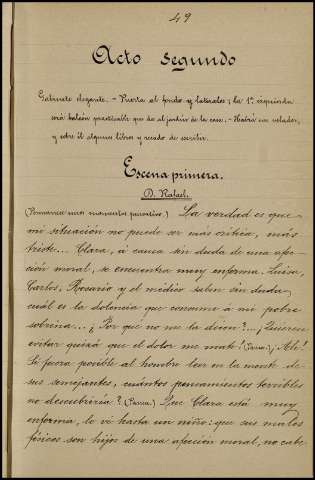 49
Acto segundo
Gabinete elegante. - Puerta al fondo y laterales; la 1ª izquierda
será balcón practicable que da al jardín de la casa. - Habrá un velador,
y sobre él algunos libros y recado de escribir.
Escena primera.
D. Rafael.
(Permanece unos momentos pensativo.) La verdad es que
mi situación no puede ser más crítica, más
triste... Clara, á causa sin duda de una afec-
ción moral, se encuentra muy enferma. Luisa,
Carlos, Rosario y el médico saben sin duda
cuál es la dolencia que consume á mi pobre
sobrina... ¿Por qué no me la dicen?... ¿Quieren
evitar quizá que el dolor me mate? (Pausa.) ¡Ah!
Si fuera posible al hombre leer en la mente de
sus semejantes, cuántos pensamientos terribles
no descubriría? (Pausa.) Que Clara está muy
enferma, lo vé hasta un niño; que sus males
físicos son hijos de una afección moral, no cabe